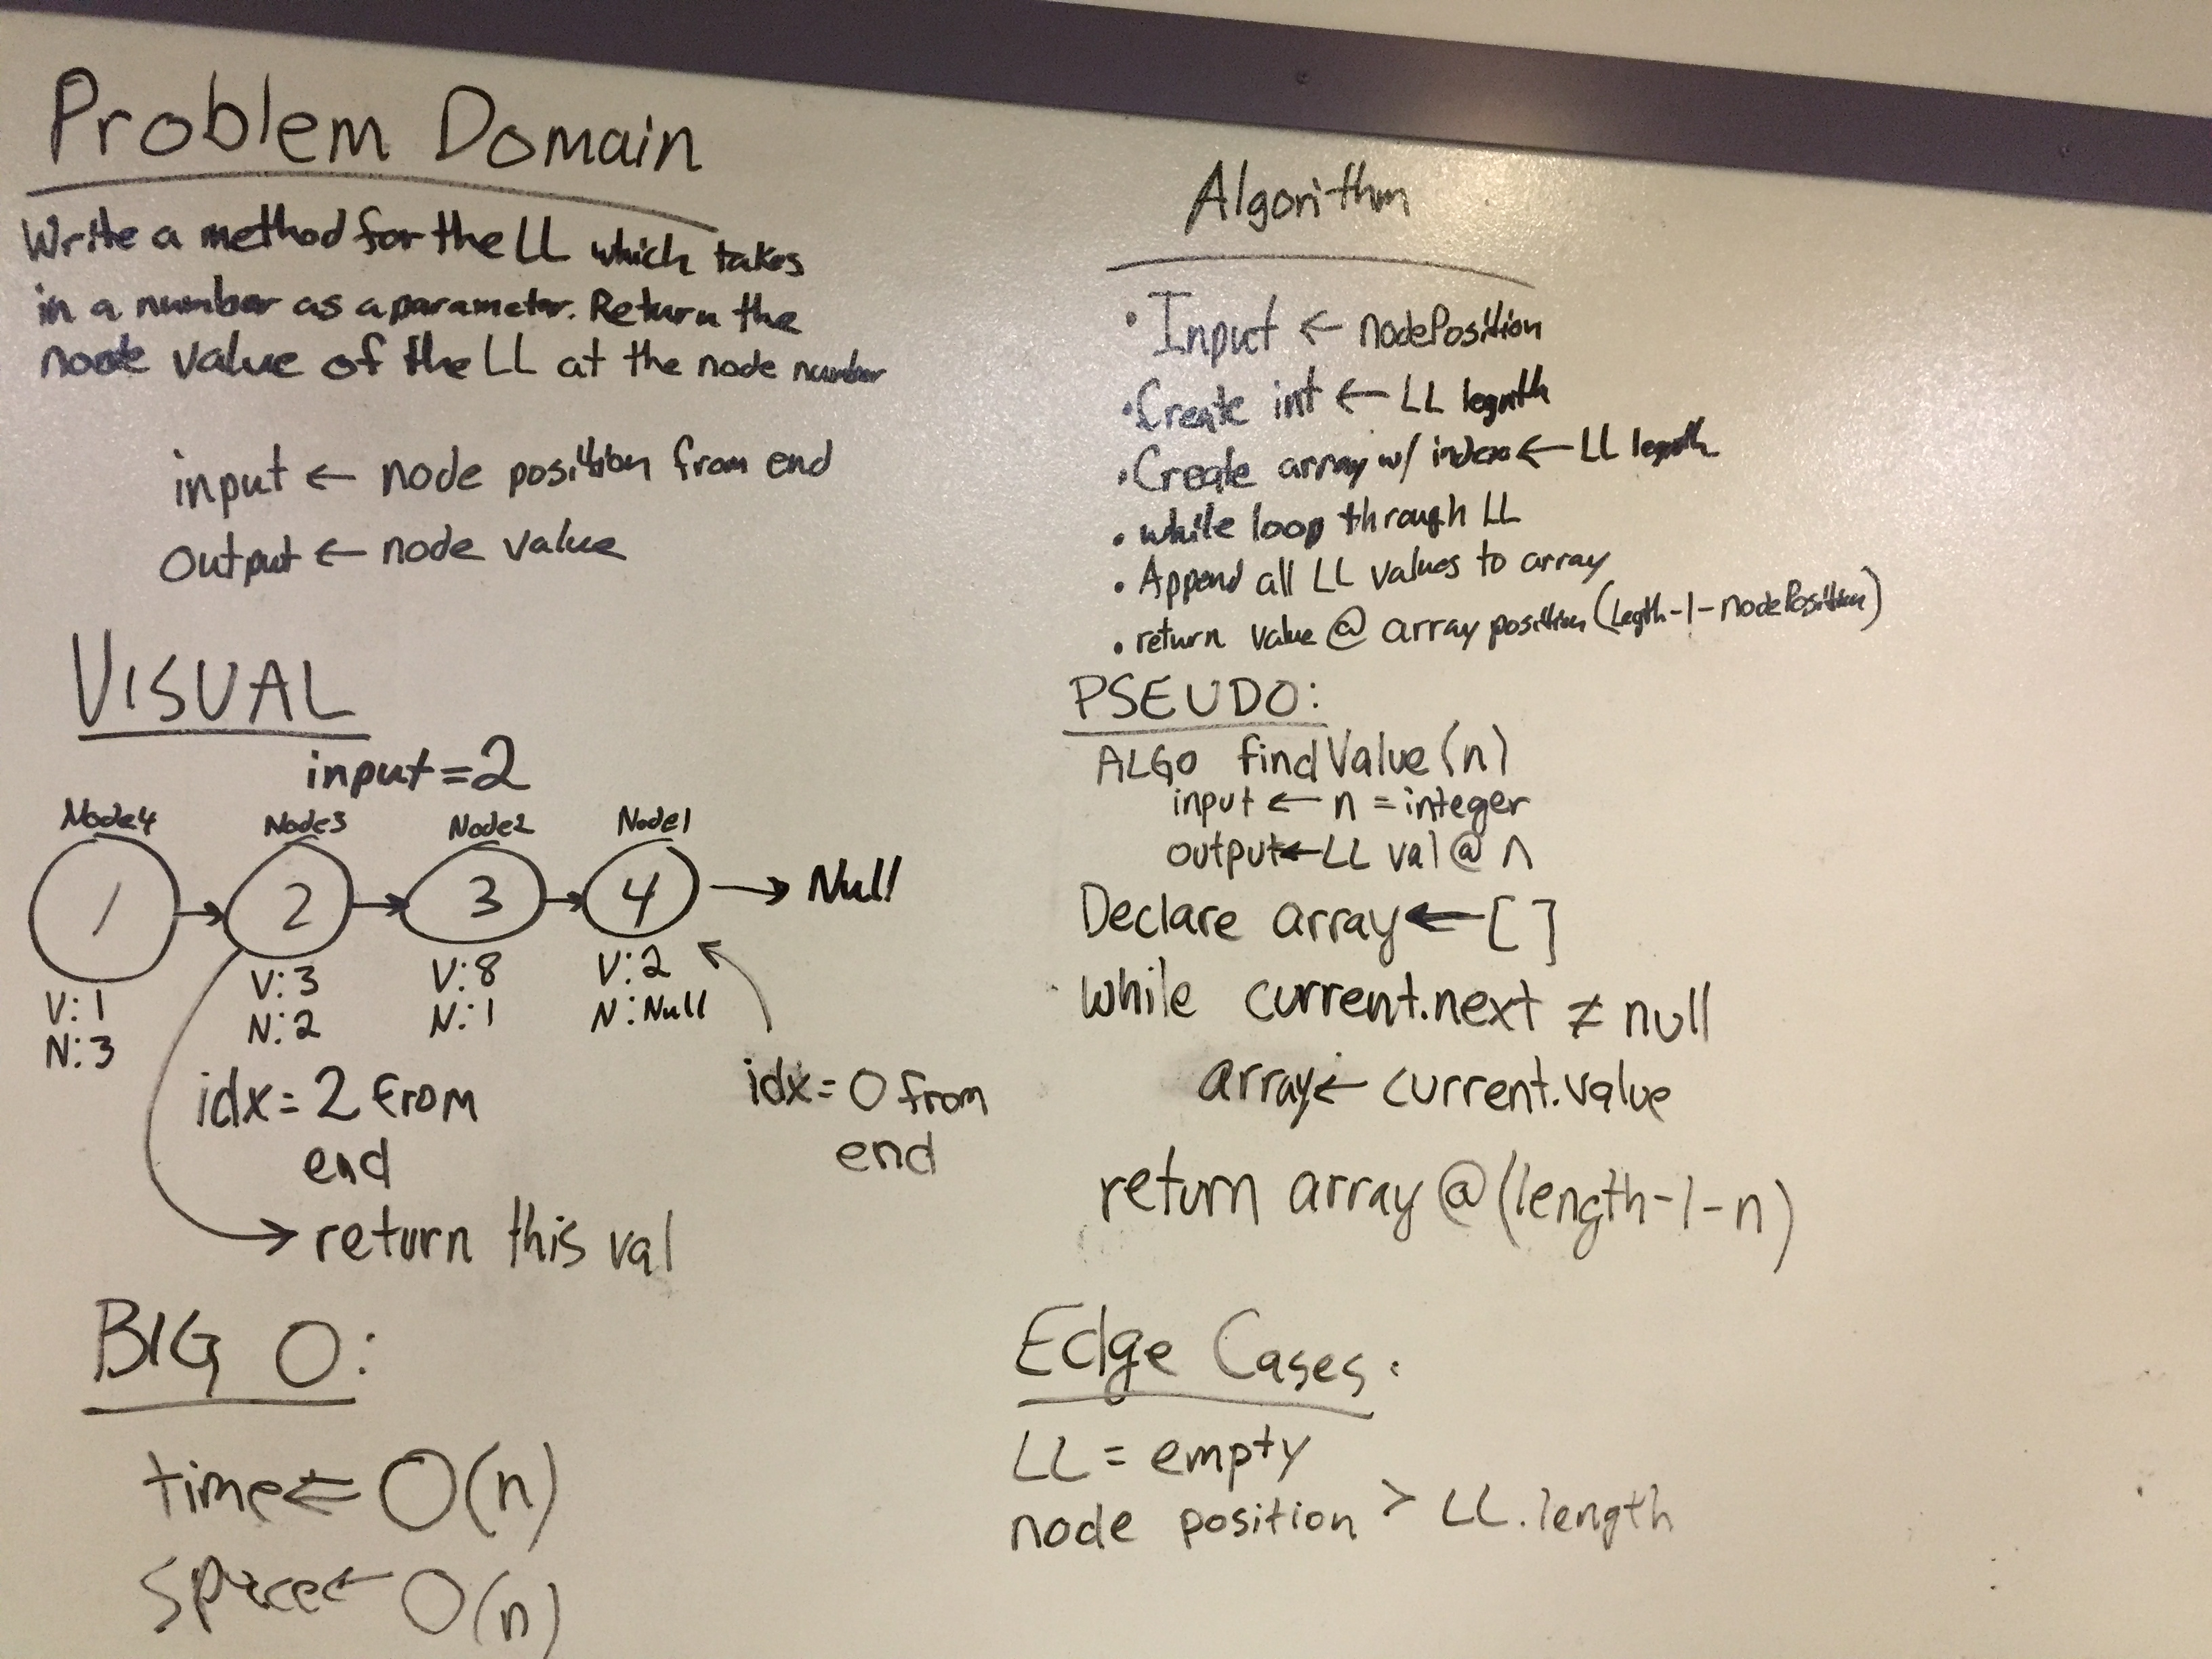 Problem Domain
Write a method for the LL which takes
in a number as a parameter. Return the
node value of the LL at the node number
input ← node position from end
Output ← node value
VISUAL
input = 2
Node4 Node3 Node2 Node1
1 → 2 → 3 → 4 → Null
V: 1 V: 3 V: 8 V: 2
N: 3 N: 2 N: 1 N: Null
idx = 2 from
end
idx = 0 from
end
return this val
BIG O:
time ← O(n)
space ← O(n)
Algorithm
• Input ← nodePosition
• Create int ← LL legnth
• Create array w/ index ← LL legnth
• while loop through LL
• Append all LL values to array
• return value @ array position (legth-1-nodePosition)
PSEUDO:
ALGO findValue(n)
input ← n = integer
output ← LL val @ n
Declare array ← [ ]
while current.next ≠ null
array ← current.value
return array @ (length-1-n)
Edge Cases:
LL = empty
node position > LL.length